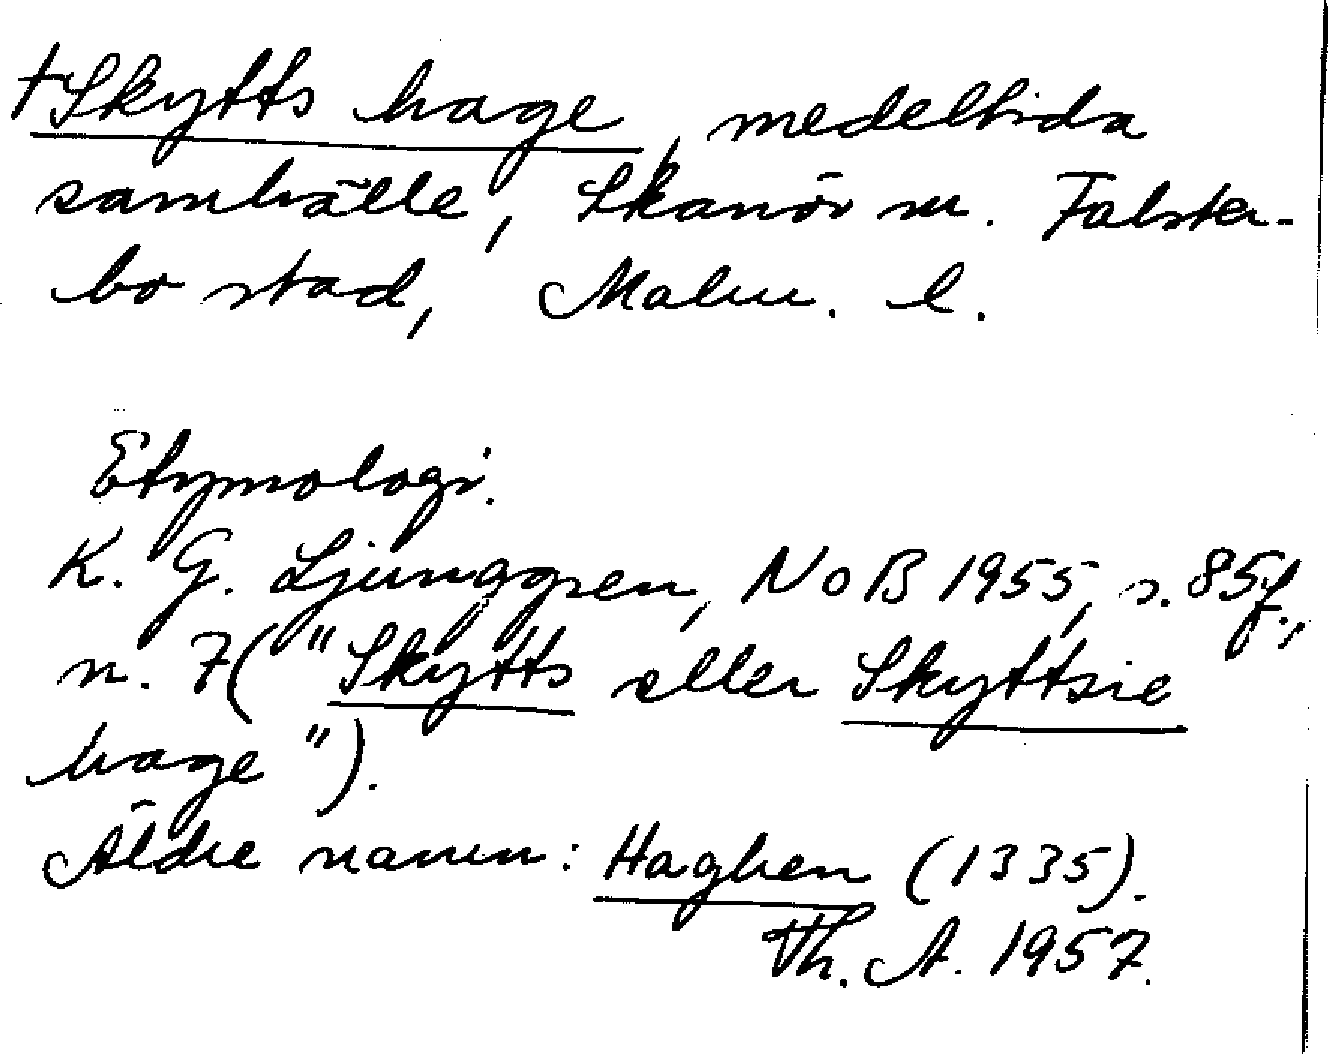 †Skytts hage, medeltida
samhälle, Skanör m. Falster-
bo stad, Malm. l.
Etymologi.
K. G. Ljunggren, NoB 1955, s. 85f.,
n. 7 ("Skytts eller Skyttsie
hage").
Äldre namn: Haghen (1335).
Th. A. 1957.